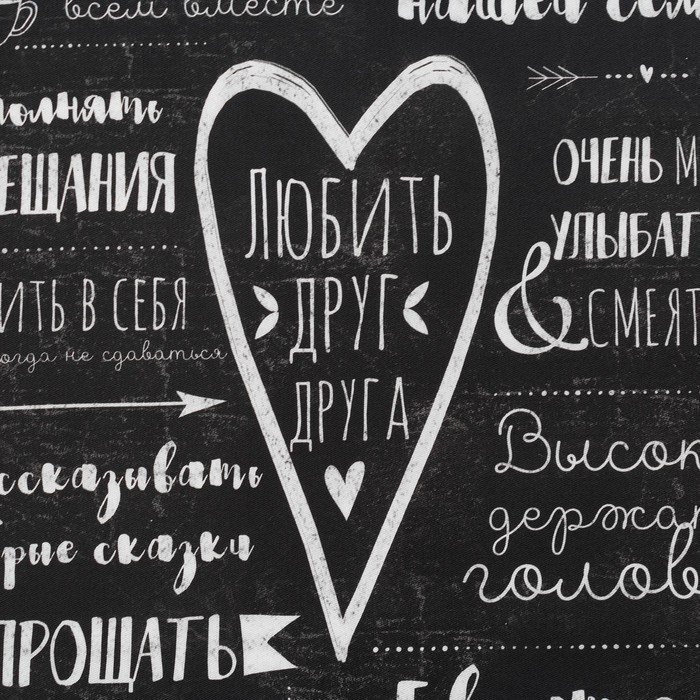 всем вместе
нашей сем
полнять
ЕЩАНИЯ
ИТЬ В СЕБЯ
когда не сдаваться
ссказывать
рые сказки
ПРОЩАТЬ
ЛЮБИТЬ
ДРУГ
ДРУГА
ОЧЕНЬ М
УЛЫБАТ
& СМЕЯТ
Высок
держат
голов